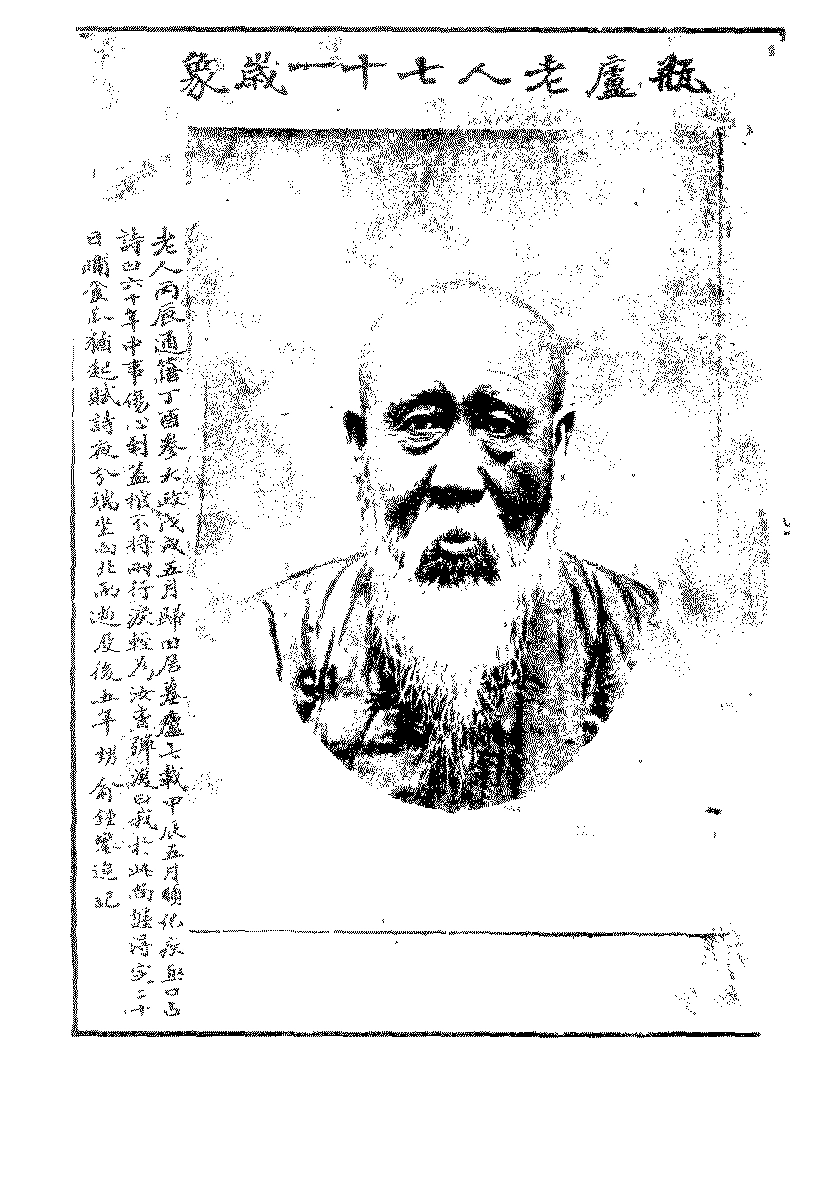 瓶廬老人七十一歲象
老人丙辰通籍丁酉參大政戊戌五月歸田居墓廬七載甲辰五月順化疾亟口占
詩曰六十年中事傷心到蓋棺不將兩行淚輕為汝曹彈曰我於此尚能得字二十
日晡食猶起賦詩夜分端坐向北而逝後五年甥俞鍾鑾追記